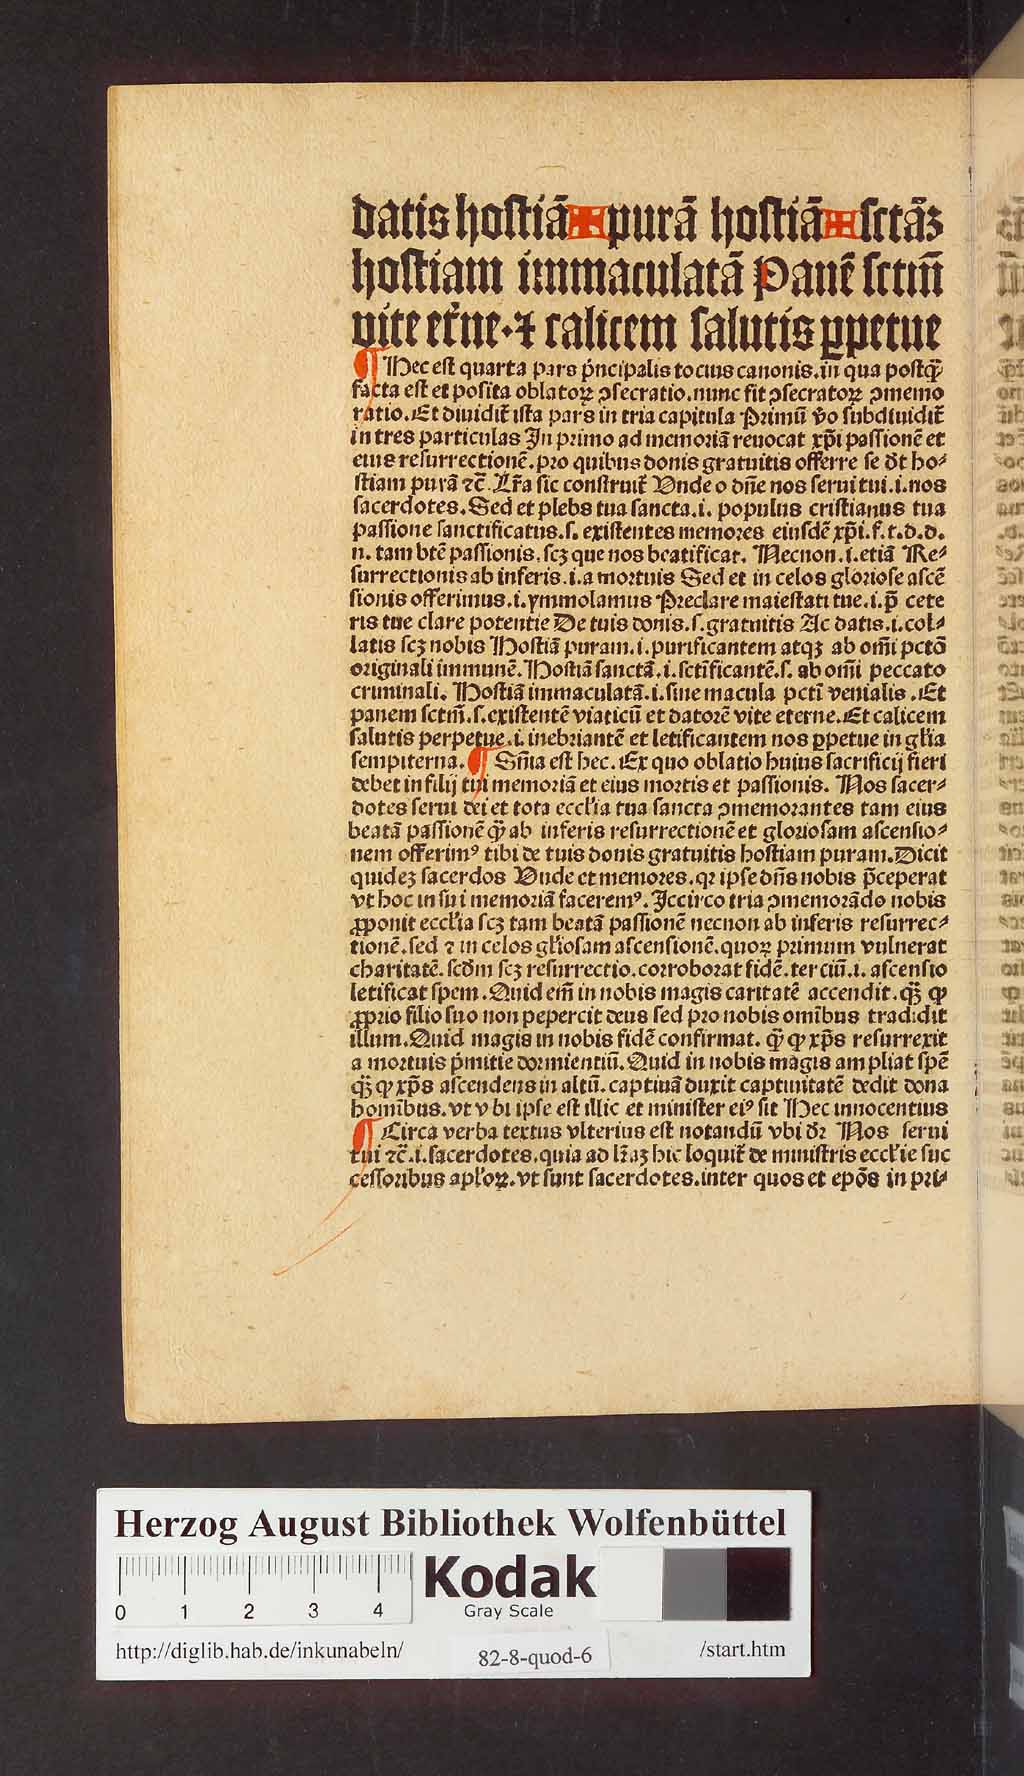 datis hostiā ✠ purā hostiā ✠ sctāʒ
hostiam immaculatā Panē sctm̄
vite et̄ne·⁊ calicem salutis ꝑpetue
¶ Hec est quarta pars p̄ncipalis tocius canonis.in qua postq̄ꝫ
facta est et posita oblatoꝝ ↄsecratio.nunc fit ↄsecratoꝝ ↄmemo
ratio.Et diuidit̄ ista pars in tria capitula Primū v̄o subdiuidit̄
in tres particulas In primo ad memoriā reuocat xp̄i passionē et
eius resurrectionē.pro quibus donis gratuitis offerre se dt̄ ho⸗
stiam purā ⁊c̄. Lr̄a sic construit̄ Vnde o dn̄e nos serui tui.i.nos
sacerdotes.Sed et plebs tua sancta.i. populus cristianus tua
passione sanctificatus.s. existentes memores eiusdē xp̄i.f.t.d.d.
n. tam btē passionis.scꝫ que nos beatificat. Necnon.i.etiā Re⸗
surrectionis ab inferis.i.a mortuis Sed et in celos gloriose ascē
sionis offerimus.i.ymmolamus Preclare maiestati tue.i.p̄ cete
ris tue clare potentie De tuis donis.s.gratuitis Ac datis.i.col⸗
latis scꝫ nobis Hostiā puram.i.purificantem atqꝫ ab om̄i pctō
originali immunē.Hostiā sanctā.i.sctīficantē.s. ab om̄i peccato
criminali. Hostiā immaculatā.i.sine macula pctī venialis.Et
panem sctm̄.s.existentē viaticū et datorē vite eterne.Et calicem
salutis perpetue.i. inebriantē et letificantem nos ꝑpetue in gl̄ia
sempiterna. ¶ Sn̄ia est hec. Ex quo oblatio huius sacrificij fieri
debet in filij tui memoriā et eius mortis et passionis. Nos sacer⸗
dotes serui dei et tota eccl̄ia tua sancta ↄmemorantes tam eius
beatā passionē q̄ꝫ ab inferis resurrectionē et gloriosam ascensio⸗
nem offerimꝰ tibi de tuis donis gratuitis hostiam puram.Dicit
quideꝫ sacerdos Vnde et memores.qꝛ ipse dn̄s nobis p̄ceperat
vt hoc in sui memoriā faceremꝰ.Iccirco tria ↄmemorādo nobis
ꝓponit eccl̄ia scꝫ tam beatā passionē necnon ab inferis resurrec⸗
tionē.sed ⁊ in celos gl̄iosam ascensionē.quoꝝ primum vulnerat
charitatē.scd̄m scꝫ resurrectio.corroborat fidē.terciū.i. ascensio
letificat spem.Quid em̄ in nobis magis caritatē accendit.q̄ꝫ ꝙ
ꝓprio filio suo non pepercit deus sed pro nobis omībus tradidit
illum.Quid magis in nobis fidē confirmat. q̄ꝫ ꝙ xp̄s resurrexit
a mortuis p̄mitie dormientiū.Quid in nobis magis ampliat spē
q̄ꝫ ꝙ xp̄s ascendens in altū.captiuā duxit captiuitatē dedit dona
homībus.vt vbi ipse est illic et minister eiꝰ sit Hec innocentius
¶ Circa verba textus vlterius est notandū vbi dꝛ Nos serui
tui ⁊c̄.i.sacerdotes.quia ad lr̄aꝫ hic loquit̄ de ministris eccl̄ie suc
cessoribus apl̄oꝝ.vt sunt sacerdotes.inter quos et ep̄os in pri⸗
Herzog August Bibliothek Wolfenbüttel
0 1 2 3 4
Kodak
Gray Scale
http://diglib.hab.de/inkunabeln/
82-8-quod-6
/start.htm